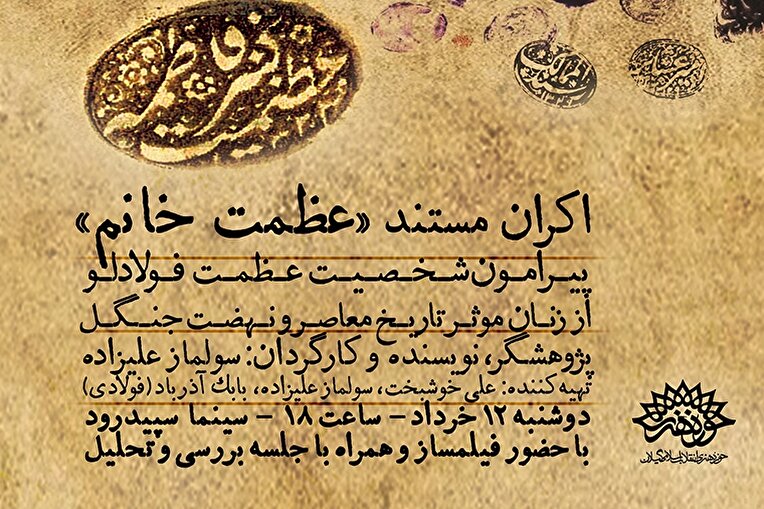 اکران مستند «عظمت خانم»
پیرامون شخصیت عظمت فولادلو
از زنان موثر تاریخ معاصر و نهضت جنگل
پژوهشگر، نویسنده و کارگردان: سولماز علیزاده
تهیه‌کننده: علی خوشبخت، سولماز علیزاده، بابک آذرباد (فولادی)
دوشنبه ۱۲ خرداد - ساعت ۱۸ - سینما سپیدرود
با حضور فیلمساز و همراه با جلسه بررسی و تحلیل
حوزه هنری
حوزه هنری انقلاب اسلامی گیلان